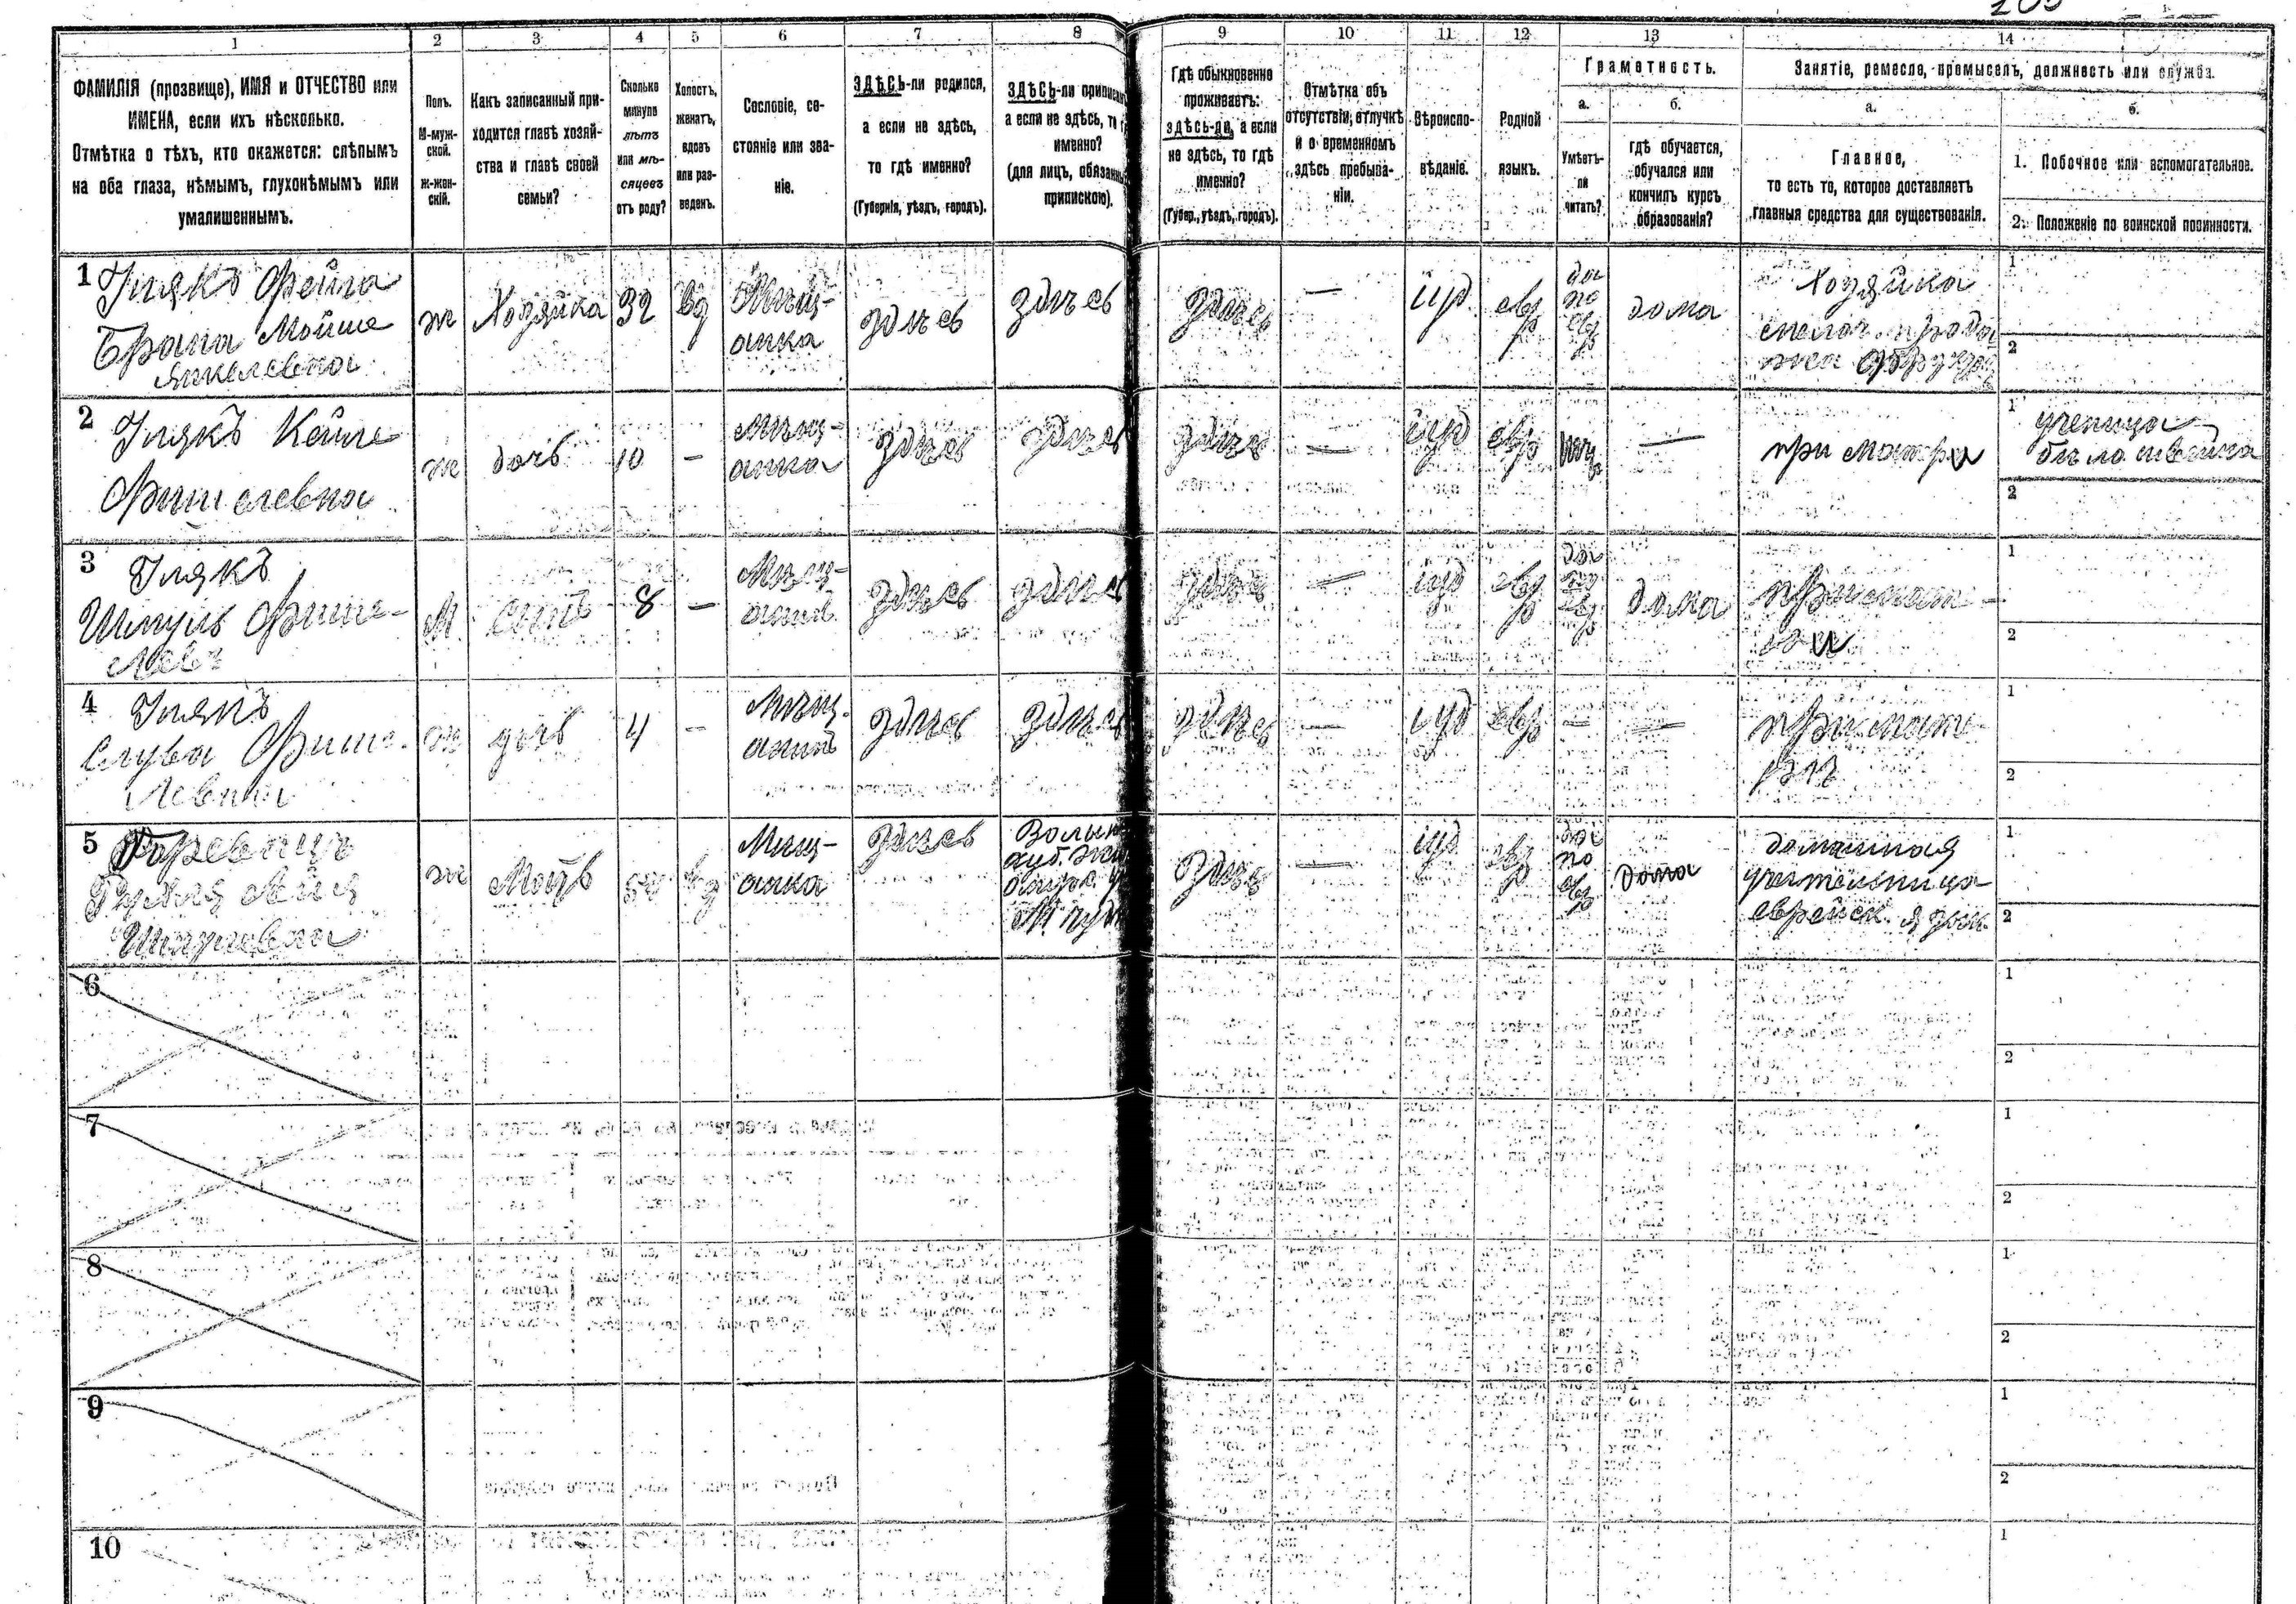 205
1 2 3 4 5 6 7 8 9 10 11 12 13 14
ФАМИЛІЯ (прозвище), ИМЯ и ОТЧЕСТВО или
ИМЕНА, если ихъ нѣсколько.
Отмѣтка о тѣхъ, кто окажется: слѣпымъ
на оба глаза, нѣмымъ, глухонѣмымъ или
умалишеннымъ.
Полъ.
М-муж-
ской.
ж-жен-
скій.
Какъ записанный при-
ходится главѣ хозяй-
ства и главѣ своей
семьи?
Сколько
минуло
лѣтъ
или мѣ-
сяцевъ
отъ роду?
Холостъ,
женатъ,
вдовъ
или раз-
веденъ.
Сословіе, со-
стояніе или зва-
ніе.
ЗДѢСЬ-ли родился,
а если не здѣсь,
то гдѣ именно?
(Губернія, уѣздъ, городъ).
ЗДѢСЬ-ли приписан
а если не здѣсь, то г
именно?
(для лицъ, обязанны
припискою).
Гдѣ обыкновенно
проживаетъ:
здѣсь-ли, а если
не здѣсь, то гдѣ
именно?
(Губер., уѣздъ, городъ).
Отмѣтка объ
отсутствіи, отлучкѣ
и о временномъ
здѣсь пребыва-
ніи.
Вѣроиспо-
вѣданіе.
Родной
языкъ.
Грамотность.
а.
Умѣетъ-
ли
читать?
б.
гдѣ обучается,
обучался или
кончилъ курсъ
образованія?
Занятіе, ремесло, промыселъ, должность или служба.
а.
Главное,
то есть то, которое доставляетъ
главныя средства для существованія.
б.
1. Побочное или вспомогательное.
2. Положеніе по воинской повинности.
1
Фейга
Брана Мойше
Янкелевна
ж
Хозяйка
32
вд
Мѣщ-
анка
здѣсь
здѣсь
здѣсь
—
іуд
евр
да
по
евр
дома
Хозяйка
мелоч. прода
жа
1
2
2
Фишелевна
ж
дочь
10
—
мѣщ-
анка
здѣсь
здѣсь
здѣсь
—
іуд
евр
—
при матери
1 ученица
2
3
Шмуль Фише-
левъ
м
сынъ
8
—
Мѣщ-
анинъ
здѣсь
здѣсь
здѣсь
—
іуд
евр
да
по
евр
дома
при мат-
ри
1
2
4
Фише-
левна
ж
дочь
4
—
Мѣщ-
здѣсь
здѣсь
здѣсь
—
іуд
евр
—
—
при мате-
рѣ
1
2
5
Шмулевна
ж
Мать
вд
Мѣщ-
анка
здѣсь
Волын
губ. Жи
здѣсь
—
іуд
евр
да
по
евр
дома
домашная
учительница
еврейск. язык.
1
2
6
1
2
7
1
2
8
1
2
9
1
2
10
1